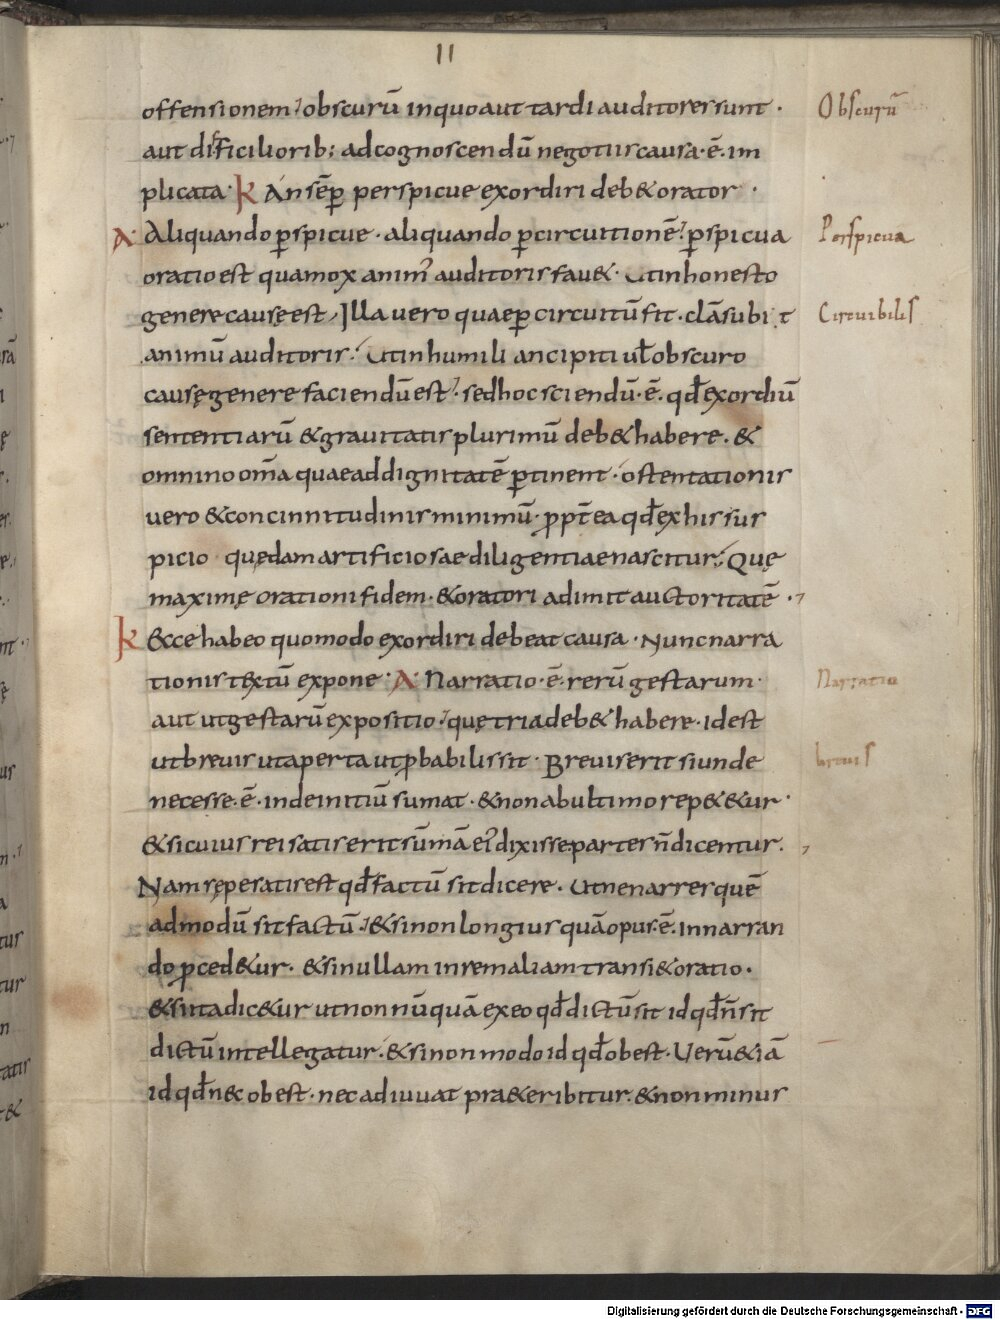 11
offensionem; obscurū inquo aut tardi auditores sunt ·
Obscurū
aut difficiliorib; ad cognoscendū negotiis causa · ē · im
plicata · K An sēp̄ perspicue exordiri deb& orator ·
A· Aliquando p̄spicue · aliquando p̄ circuitionē; p̄spicua
Perspicua
oratio est qua mox anim᾽ auditoris fau& · Ut in honesto
genere causę est, Illa uero quae p̄ circuitū fit · clā subi t
Circuibilis
animū auditoris; Ut in humili ancipiti uł obscuro
causę genere faciendū est; sed hoc sciendū · ē · qđ exordiū
sententiarū & grauitatis plurimū deb& habere · &
omnino om̄a quae ad dignitatē p̄tinent · ostentationis
uero & concinnitudinis minimū · p̄pt̄ea qđ ex his sus
picio quędam artificiosae diligentiae nascitur; Quę
maximę orationi fidem · & oratori adimit auctoritatē ·,
K &cce habeo quomodo exordiri debeat causa · Nunc narra
tionis textū expone · A· Narratio · ē · rerū gestarum ·
Narratio
aut ut gestarū expositio; quę tria deb& habere · id est
ut breuis ut aperta ut p̄babilis sit · Breuis erit si unde
breuis
necesse · ē · inde initiū sumat · & non ab ultimo rep&&ur ·
& si cuius rei satis erit sūmā ei᾽ dixisse partes n̄ dicentur ·,
Nam sępe satis est qđ factū sit dicere · Ut ne narres quē
admodū sit factū; & si non longius quā opus · ē · in narran
do p̄ced&ur · & si nullam in rem aliam transi& oratio ·
& si ita dic&ur ut non nūquā ex eo qđ dictū sit id qđ n̄ sit
dictū intellegatur · & si non modo id qđ obest · Uerū&iā
id qđ n&c obest · nec adiuuat pra&eribitur · & non minus
Digitalisierung gefördert durch die Deutsche Forschungsgemeinschaft - DFG